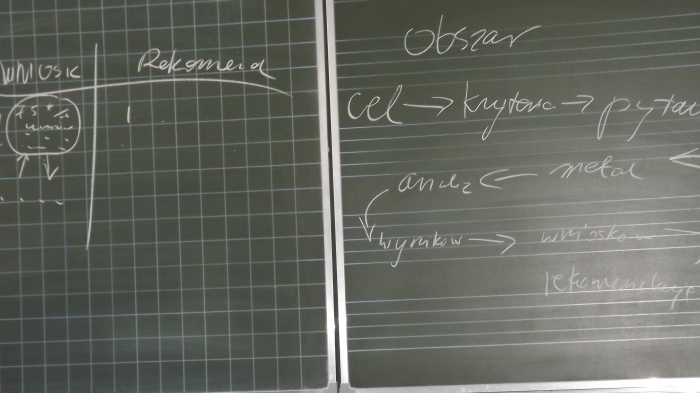 WNIOSK Rekomend
1
Obszar
cel → kryteria → pytan
← metod ←
wyników → wniosków →
rekomendacje